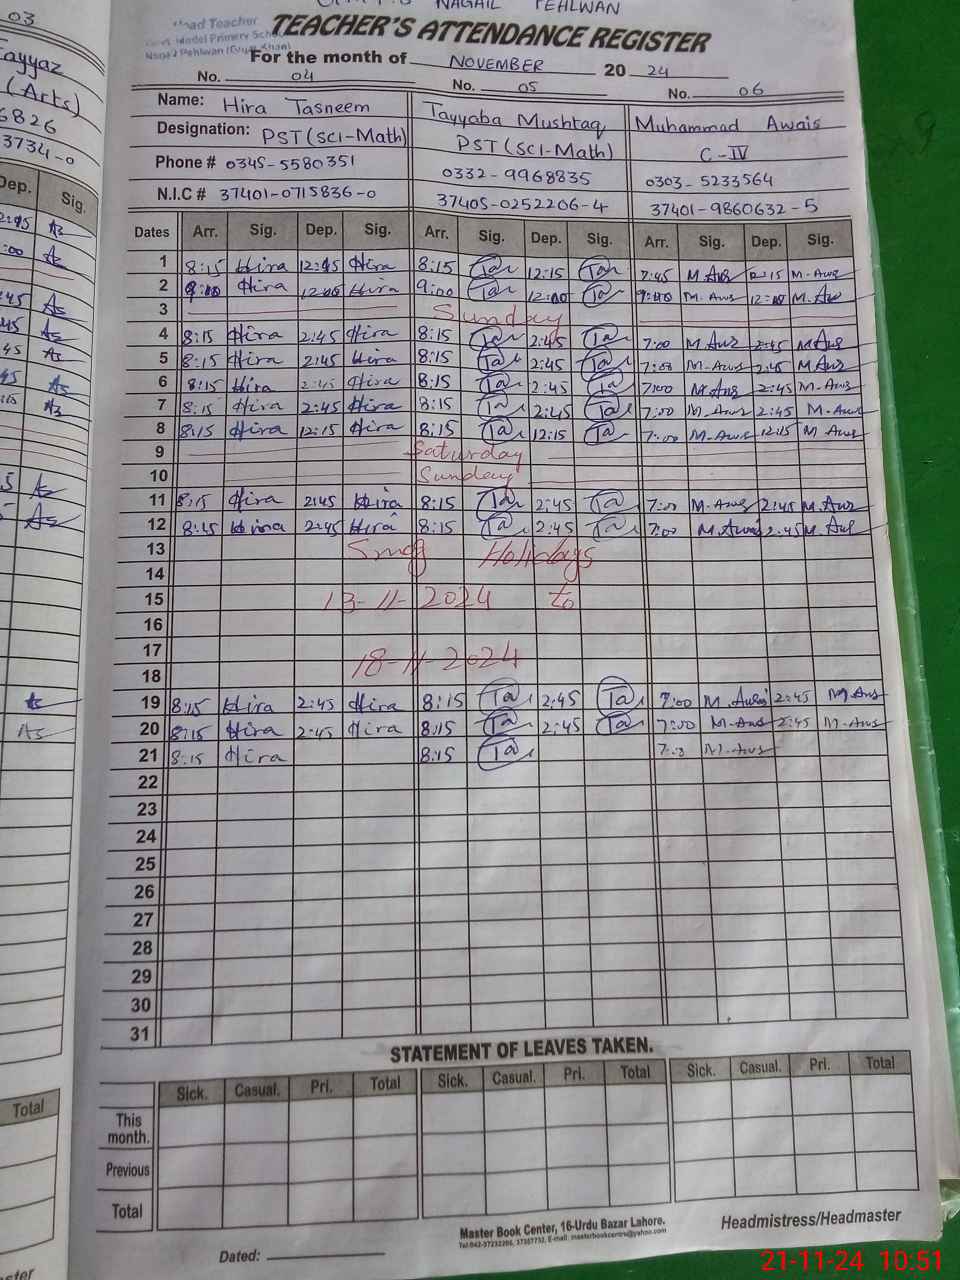 NAGAIL PEHLWAN
Head Teacher
Govt. Model Primary School
Nagail Pehlwan (Gujar Khan)
TEACHER'S ATTENDANCE REGISTER
For the month of NOVEMBER 20 24
No. 04 No. 05 No. 06
Name: Hira Tasneem Tayyaba Mushtaq Muhammad Awais
Designation: PST (SCI-Math) PST (SCI-Math) C-IV
Phone # 0345-5580351 0332-9968835 0303-5233564
N.I.C # 37401-0715836-0 37405-0252206-4 37401-9860632-5
Dates Arr. Sig. Dep. Sig. Arr. Sig. Dep. Sig. Arr. Sig. Dep. Sig.
1 8:15 Hira 12:45 Hira 8:15 Ta 12:15 Ta 7:45 M.Aws 12:15 M.Aws
2 9:00 Hira 12:00 Hira 9:00 Ta 12:00 Ta 9:00 M.Aws 12:00 M.Aw
3 Sunday
4 8:15 Hira 2:45 Hira 8:15 Ta 2:45 Ta 7:00 M.Aws 2:45 M.Aws
5 8:15 Hira 2:45 Hira 8:15 Ta 2:45 Ta 7:00 M.Aws 2:45 M.Aws
6 8:15 Hira 2:45 Hira 8:15 Ta 2:45 Ta 7:00 M.Aws 2:45 M.Aws
7 8:15 Hira 2:45 Hira 8:15 Ta 2:45 Ta 7:00 M.Aws 2:45 M.Aws
8 8:15 Hira 12:15 Hira 8:15 Ta 12:15 Ta 7:00 M.Aws 12:15 M.Aws
9 Saturday
10 Sunday
11 8:15 Hira 2:45 Hira 8:15 Ta 2:45 Ta 7:00 M.Aws 2:45 M.Aws
12 8:15 Hira 2:45 Hira 8:15 Ta 2:45 Ta 7:00 M.Awais 2:45 M.Aws
13 Smog Holidays
14
15 13-11-2024 to
16
17 18-11-2024
18
19 8:15 Hira 2:45 Hira 8:15 Ta 2:45 Ta 7:00 M.Awais 2:45 M.Aws
20 8:15 Hira 2:45 Hira 8:15 Ta 2:45 Ta 7:00 M.Aws 2:45 M.Aws
21 8:15 Hira 8:15 Ta 7:00 M.Aws
22
23
24
25
26
27
28
29
30
31
STATEMENT OF LEAVES TAKEN.
Sick. Casual. Pri. Total Sick. Casual. Pri. Total Sick. Casual. Pri. Total
This month.
Previous
Total
Master Book Center, 16-Urdu Bazar Lahore.
Headmistress/Headmaster
Dated:
21-11-24 10:51
03
Tayyaz
(Arts)
6826
3734-0
Dep. Sig.
Total